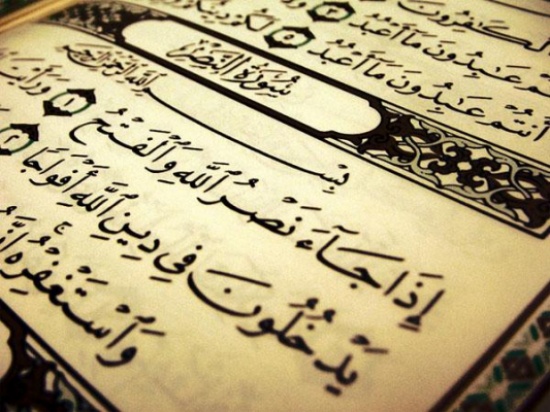 ٱلْكَٰفِرُونَ
أَنتُمْ عَٰبِدُونَ مَآ أَعْبُدُ ٣
أَنتُمْ عَٰبِدُونَ مَآ أَعْبُدُ ٥ لَكُمْ دِينُكُمْ
سُورَةُ النَّصْرِ
بِسْمِ ٱللَّهِ ٱلرَّحْمَٰنِ ٱلرَّحِيمِ
إِذَا جَآءَ نَصْرُ ٱللَّهِ وَٱلْفَتْحُ ١ وَرَأَيْتَ
يَدْخُلُونَ فِي دِينِ ٱللَّهِ أَفْوَاجًا ٢
وَٱسْتَغْفِرْهُ إِنَّهُ